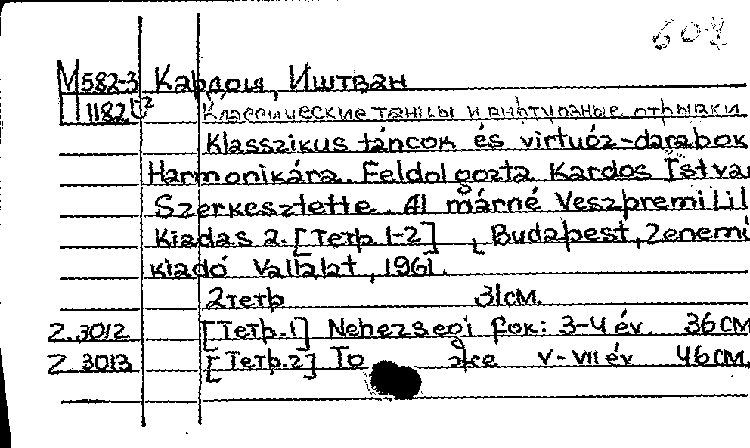 608
М582-3 Кардош, Иштван
П1182 Классические танцы и виртуозные отрывки.
Klasszikus táncok és virtuóz-darabok
Harmonikára. Feldolgozta Kardos Istva
Szerkesztette. Al márné Veszpremi Lil
Kiadas 2. [Тетр. 1-2] Budapest, Zenemű
kiadó Vallalat, 1961.
2тетр 31см.
Z.3012 [Тетр.1] Nehezsegi fok: 3-4 év. 36см
Z 3013 [Тетр.2] То же V-VII év 46см.